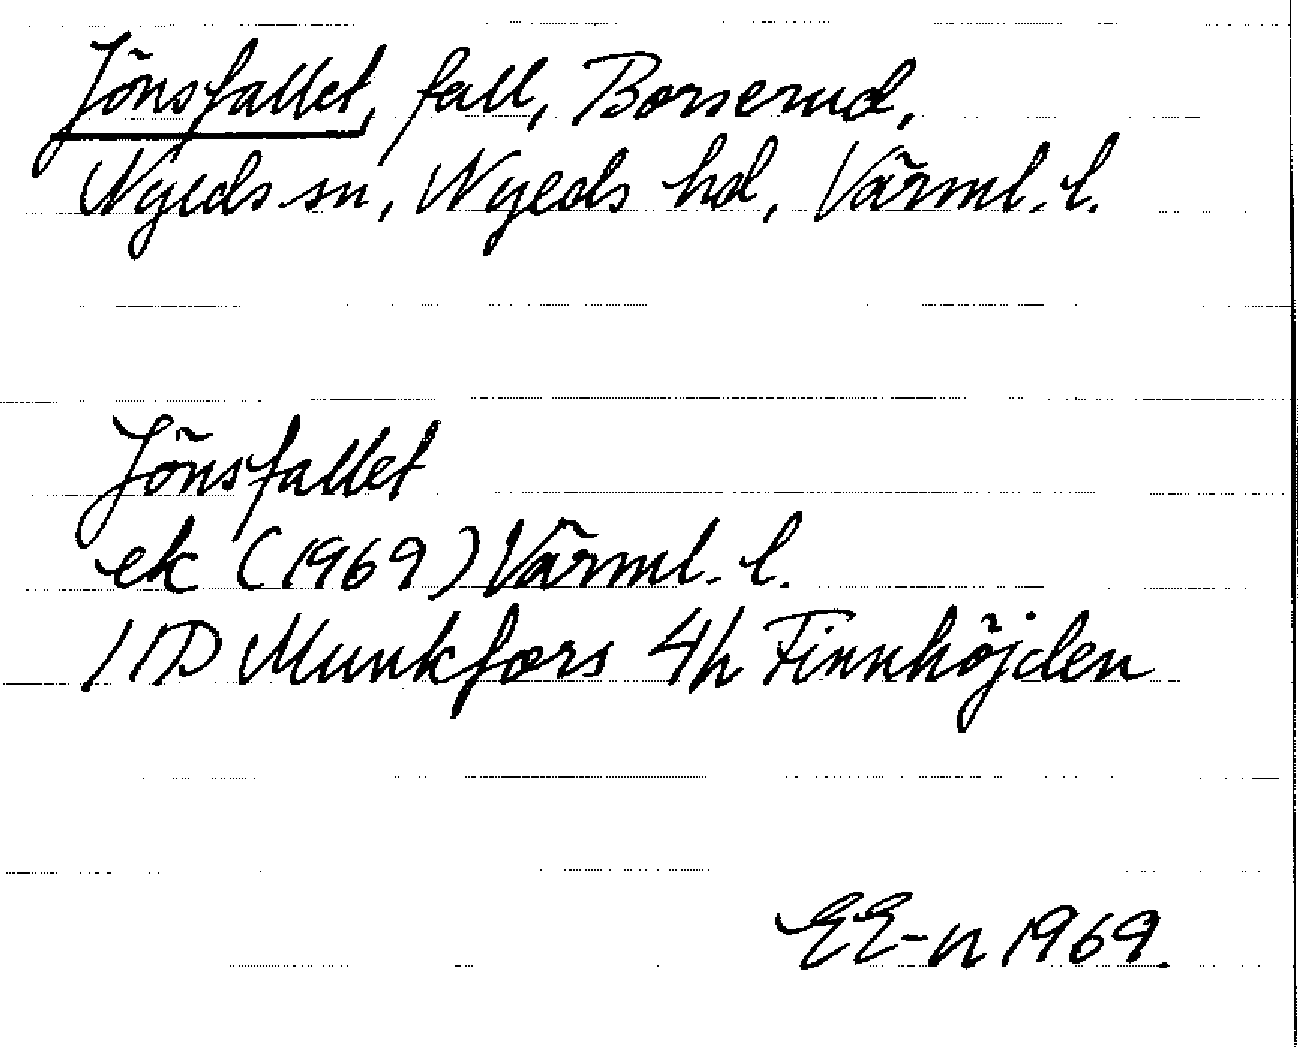 Jönsfallet, fall, Borserud,
Nyeds sn, Nyeds hd, Värml. l.
Jönsfallet
ek (1969) Värml. l.
11D Munkfors 4h Finnhöjden
EE-n 1969.